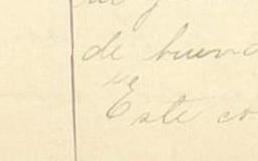 de buena
Este co